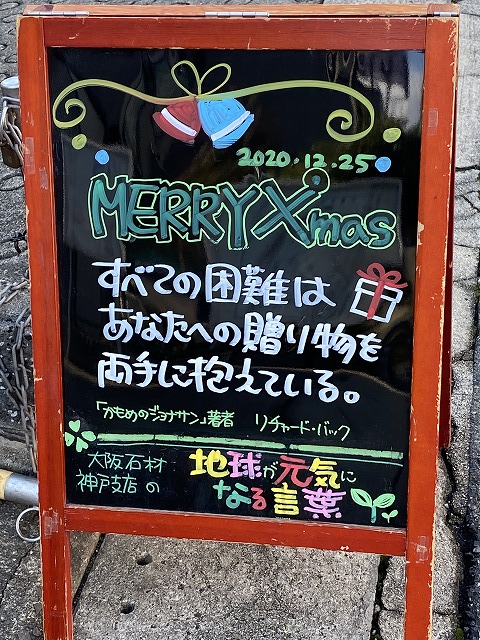 2020.12.25
MERRY X'mas
すべての困難は
あなたへの贈り物を
両手に抱えている。
「かもめのジョナサン」著者 リチャード・バック
大阪石材
神戸支店の
地球が元気に
なる言葉